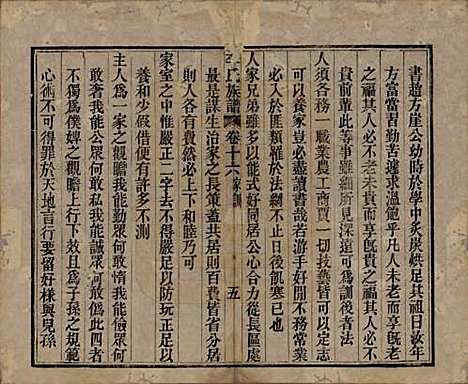 書趙方崖公幼時於學中炙炭烘足其祖曰汝年
方富當習勤苦遽求溫飽乎凡人未老而享旣老
之福其人必不老未貴而享旣貴之福其人必不
貴前輩此等事雖細所見深遠可爲訓後者法
人須各務一職業農工商賈一切技藝皆可以定志
可以養家豈必盡讀書哉若游手好閒不務常業
必入於匪類罹於法網日後飢寒已也
人家兄弟雖多以能式好同居公心合力從長區處
氏族譜 卷十六 家訓 五
最是謀生治家之長策蓋共居則百費皆省分居
人各有費然必上下和睦乃可
家室之中惟嚴正二字去不得嚴足以防玩正足以
養和少假借有許多不測
主人爲一家之觀瞻我能勤眾何敢惰我能儉眾何
敢奢我能公眾何敢私我能誠眾何敢僞此四者
不獨爲僕婢之觀瞻上行下效且爲子孫之規範
心術不可得罪於天地言行要留好樣與兒孫